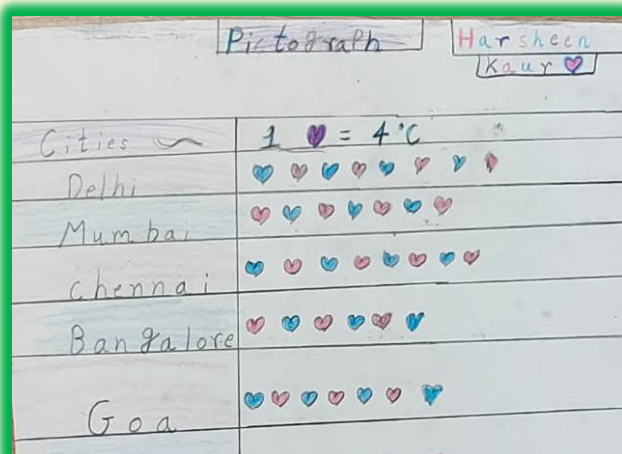 Pictograph
Harsheen
Kaur
Cities 1 = 4°C
Delhi
Mumbai
Chennai
Bangalore
Goa